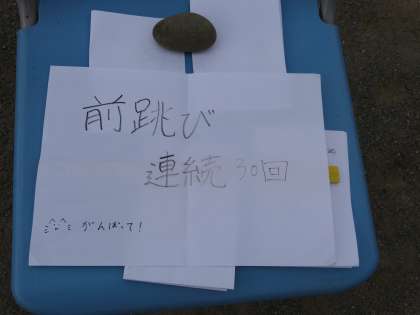 前跳び
連続30回
がんばって!